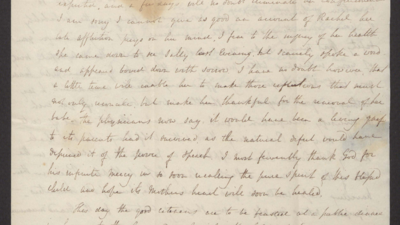 I am sorry I cannot give as good an account of Rachel her
late affliction preys on her mind, I fear to the injury of her health
She came down to see Sally last evening but scarcely spoke a word
and appeared bowed down with sorrow. I have no doubt however that
a little time will enable her to make those reflections that must
not only console but make her thankful for the removal of her
babe, the physicians now say it would have been a living grief
to its parents had it survived as the natural defect would have
deprived it of the power of speech I must fervently thank God for
his infinite mercy in so soon recalling the pure spirit of this blessed
child and hope its mothers heart will soon be healed.
This day the good citizens are to be at a public dinner